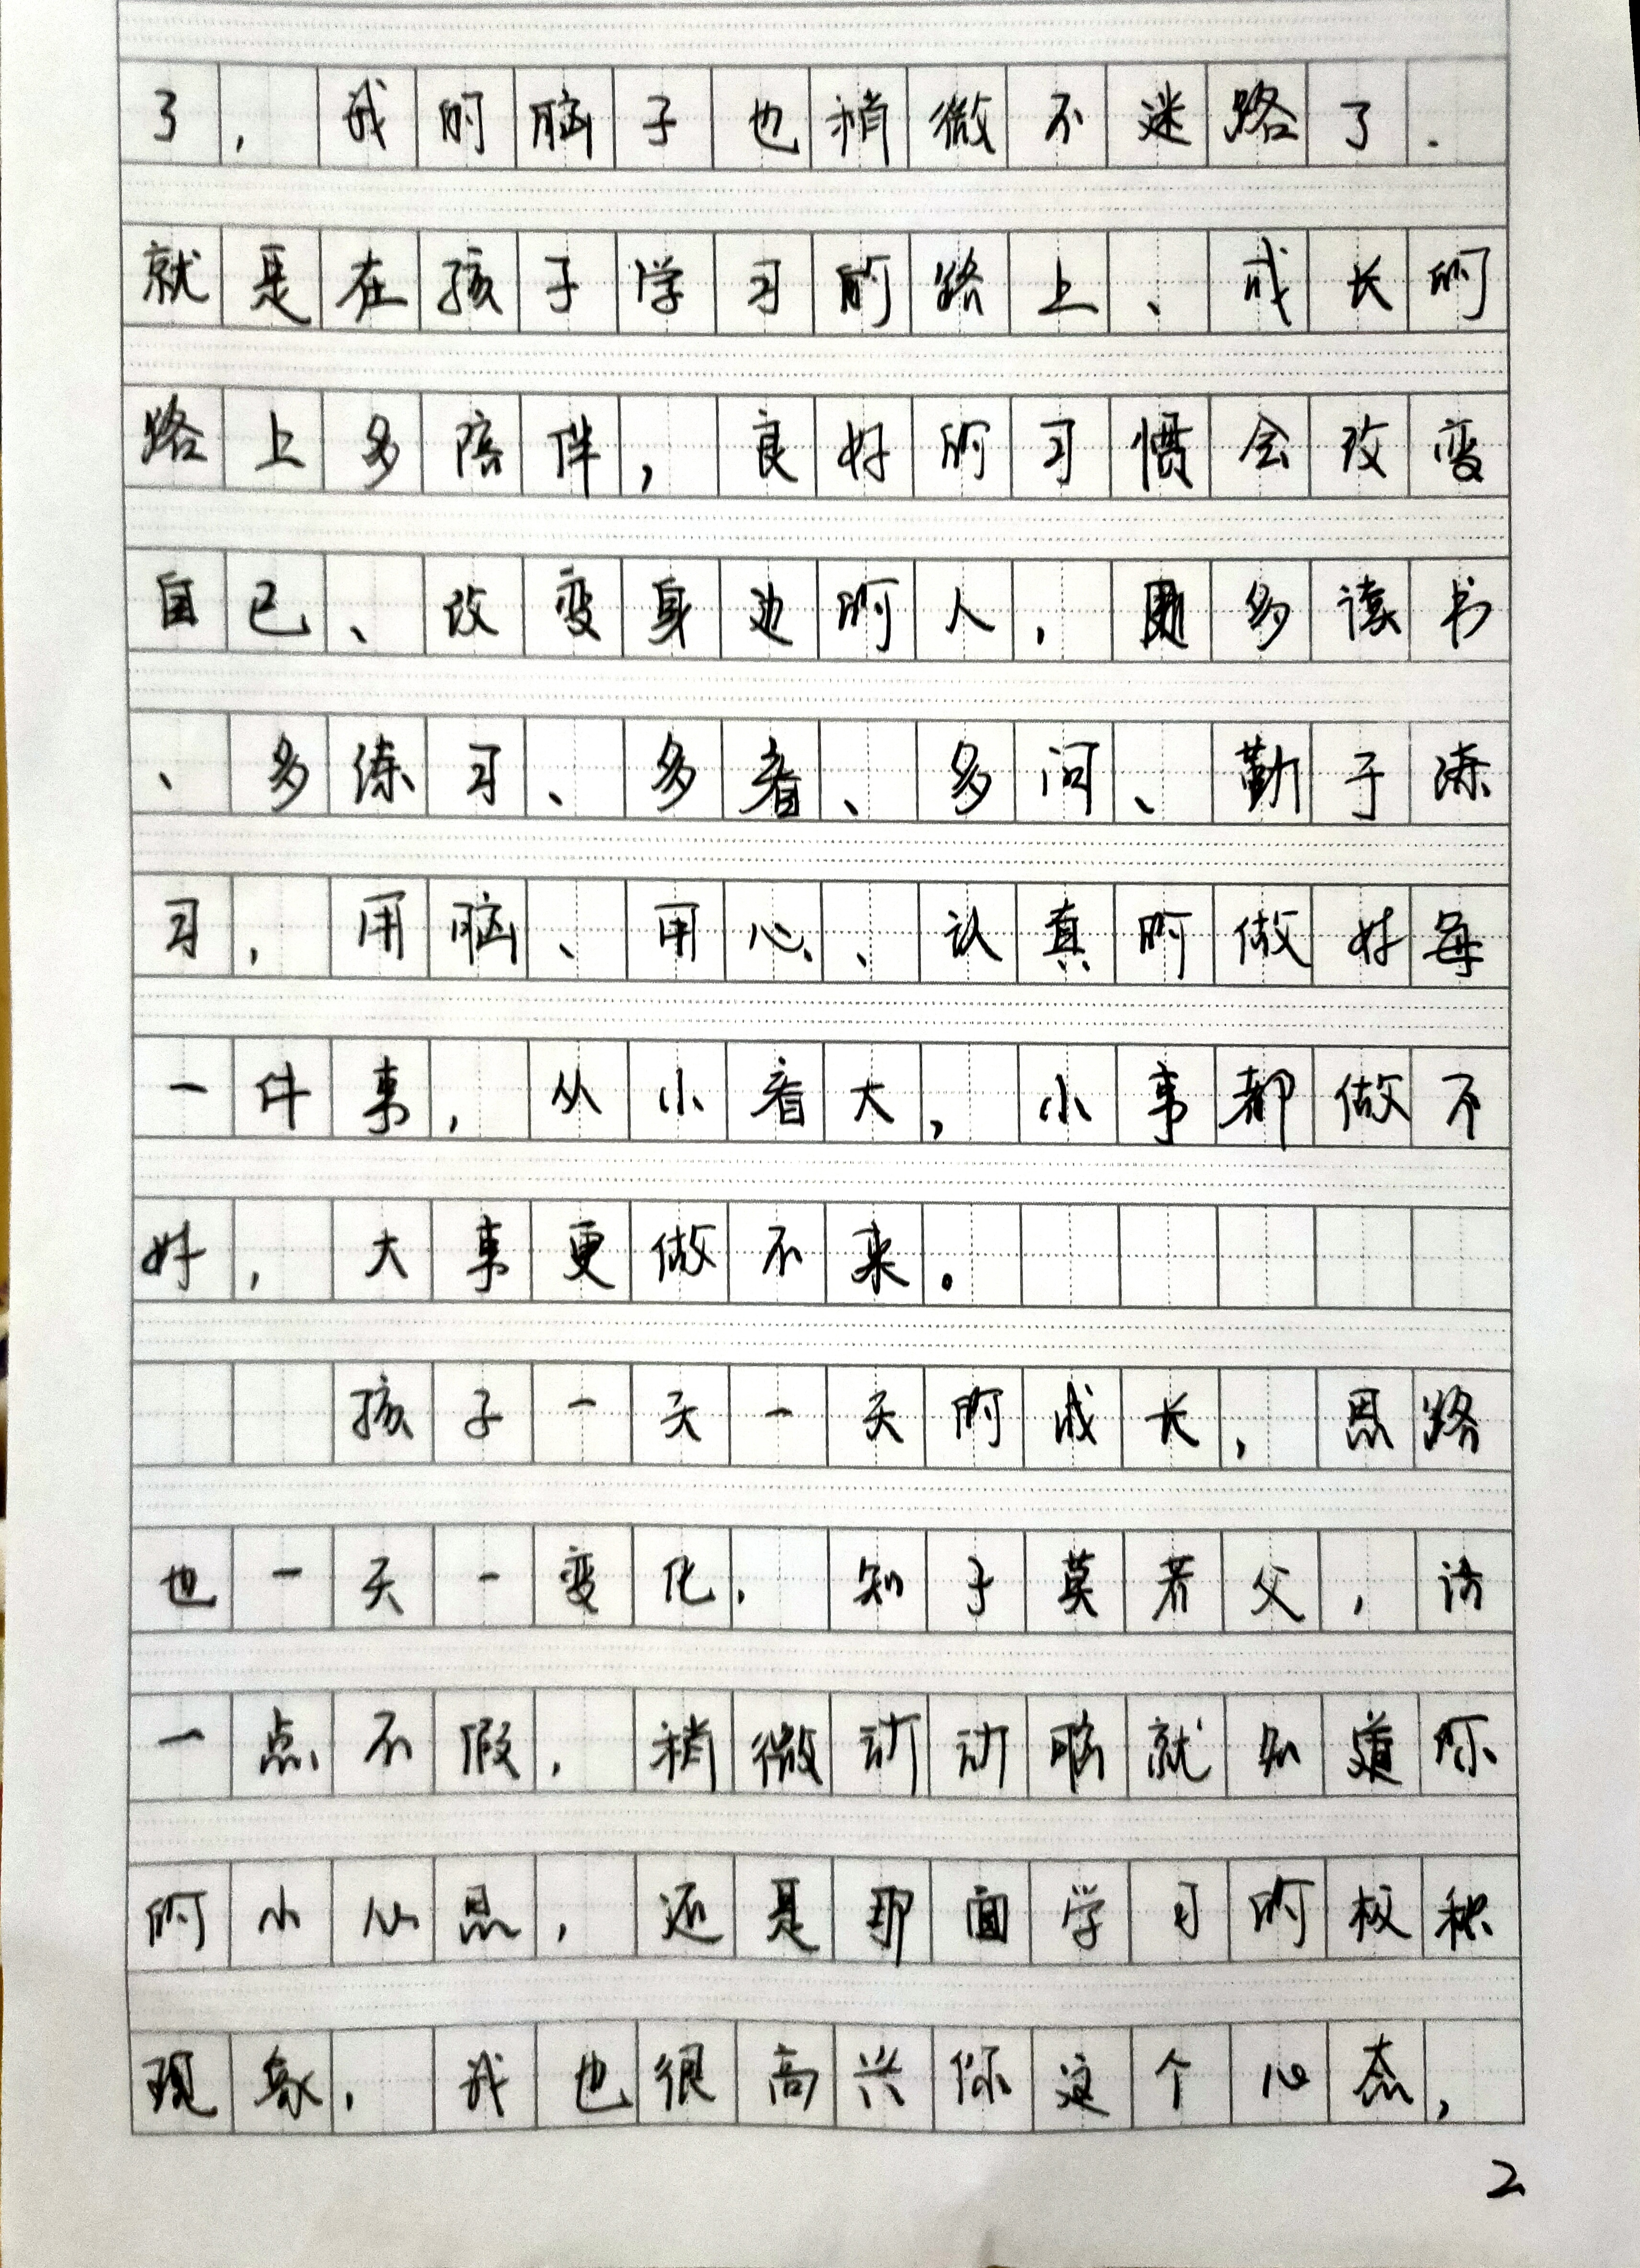 了，我的脑子也稍微不迷路了.
就是在孩子学习的路上、成长的
路上多陪伴，良好的习惯会改变
自己、改变身边的人，更多读书
、多练习、多看、多问、勤于练
习，用脑、用心、认真的做好每
一件事，从小看大，小事都做不
好，大事更做不来。
孩子一天一天的成长，思路
也一天一变化，知子莫若父，话
一点不假，稍微动动脑就知道你
的小心思，还是那面学习的极积
现象，我也很高兴你这个心态，
2